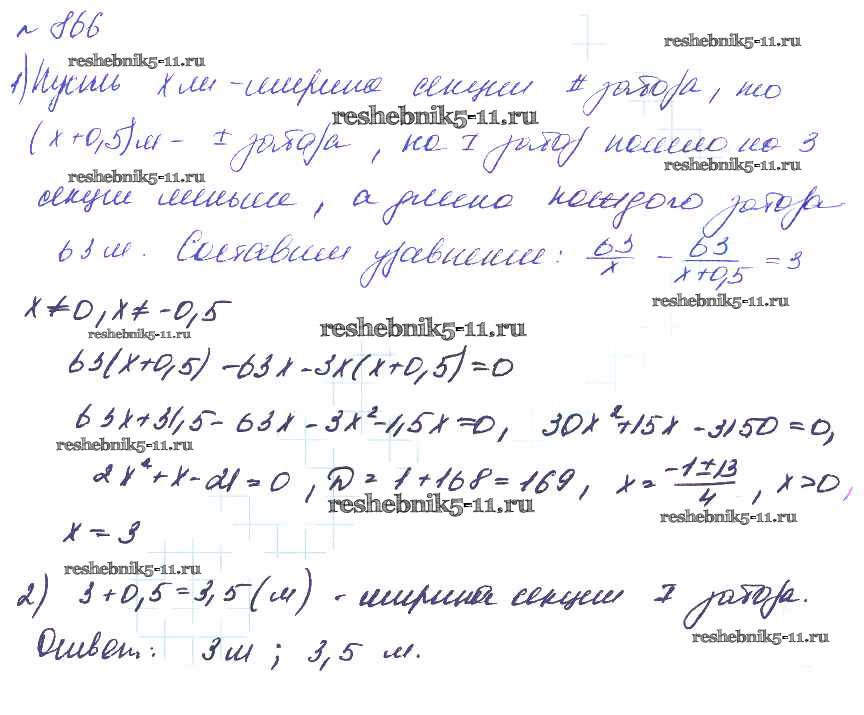 № 866
reshebnik5-11.ru
reshebnik5-11.ru
1) Пусть x м - ширина секции II забора, то
reshebnik5-11.ru
(x+0,5) м - I забора, на I забор пошло на 3
reshebnik5-11.ru
reshebnik5-11.ru
секции меньше, а длина каждого забора
63 м. Составим уравнение: 63/x - 63/(x+0,5) = 3
reshebnik5-11.ru
x≠0, x≠-0,5
reshebnik5-11.ru
reshebnik5-11.ru
63(x+0,5) - 63x - 3x(x+0,5) = 0
63x+31,5 - 63x - 3x² - 1,5x = 0, 30x²+15x - 3150 = 0,
reshebnik5-11.ru
2x²+x-21=0, D = 1+168 = 169, x = (-1±13)/4, x>0,
reshebnik5-11.ru
reshebnik5-11.ru
x = 3
reshebnik5-11.ru
2) 3+0,5=3,5 (м) - ширина секции I забора.
reshebnik5-11.ru
Ответ: 3 м; 3,5 м.